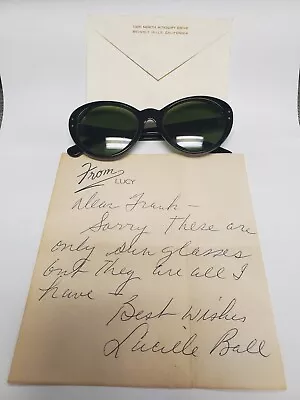 1000 NORTH ROXBURY DRIVE
BEVERLY HILLS, CALIFORNIA
From
LUCY
Dear Frank -
Sorry these are
only sun glasses
but they are all I
have -
Best Wishes
Lucille Ball